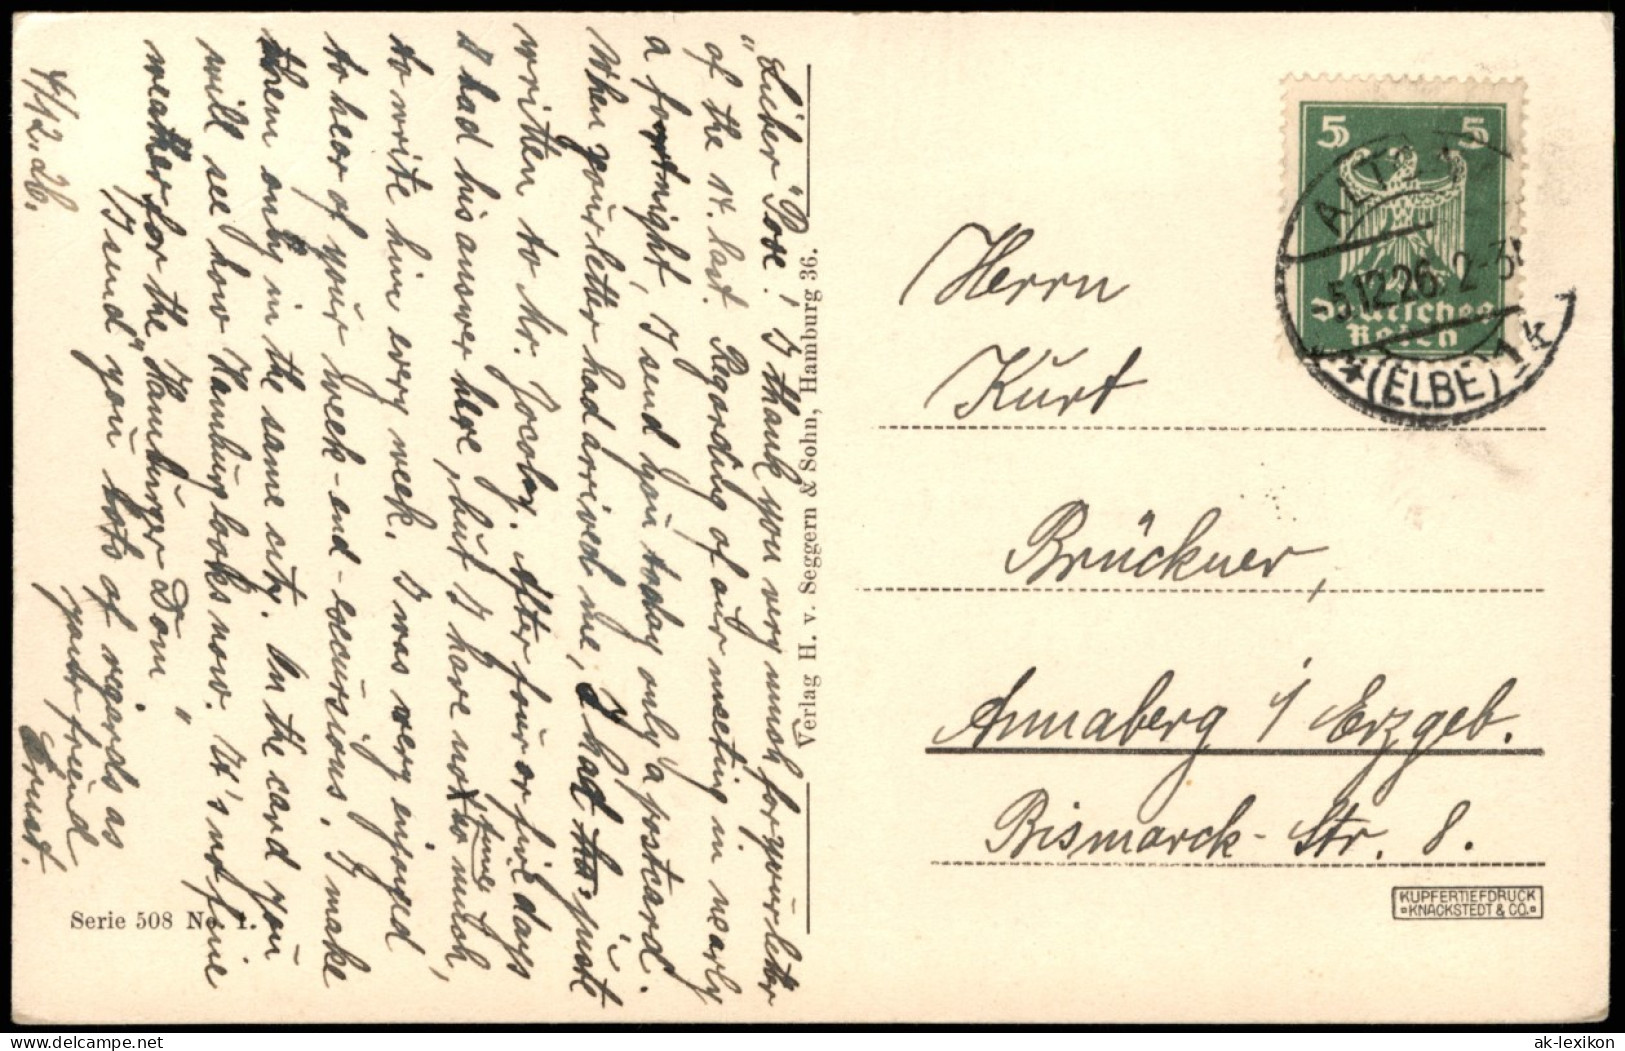 "Lieber Pose"! I thank you very much for your letter
of the 14. last. Regarding of our meeting in nearly
a fortnight, I send you today only a postcard.
When your letter had arrived me, I had just
written to Mr. Jocoby. After four or five days
I had his answer here, but I have not so much time,
to write him every week. I was very enjoyed
to hear of your week-end-excursions. I make
them only in the same city. On the card you
will see how Hamburg looks now. It's not fine
weather for the "Hamburger Dom".
I send you lots of regards as
your friend
Ernst.
4/12.26.
Serie 508 No. 1.
Verlag H. v. Seggern & Sohn, Hamburg 36.
5 5
Deutsches
Reich
ALTONA
5.12.26. 2-3
* (ELBE) 1 k
Herrn
Kurt
Brückner,
Annaberg i/ Erzgeb.
Bismarck-Str. 8.
KUPFERTIEFDRUCK
KNACKSTEDT & CO.
oldthing.de
ak-lexikon